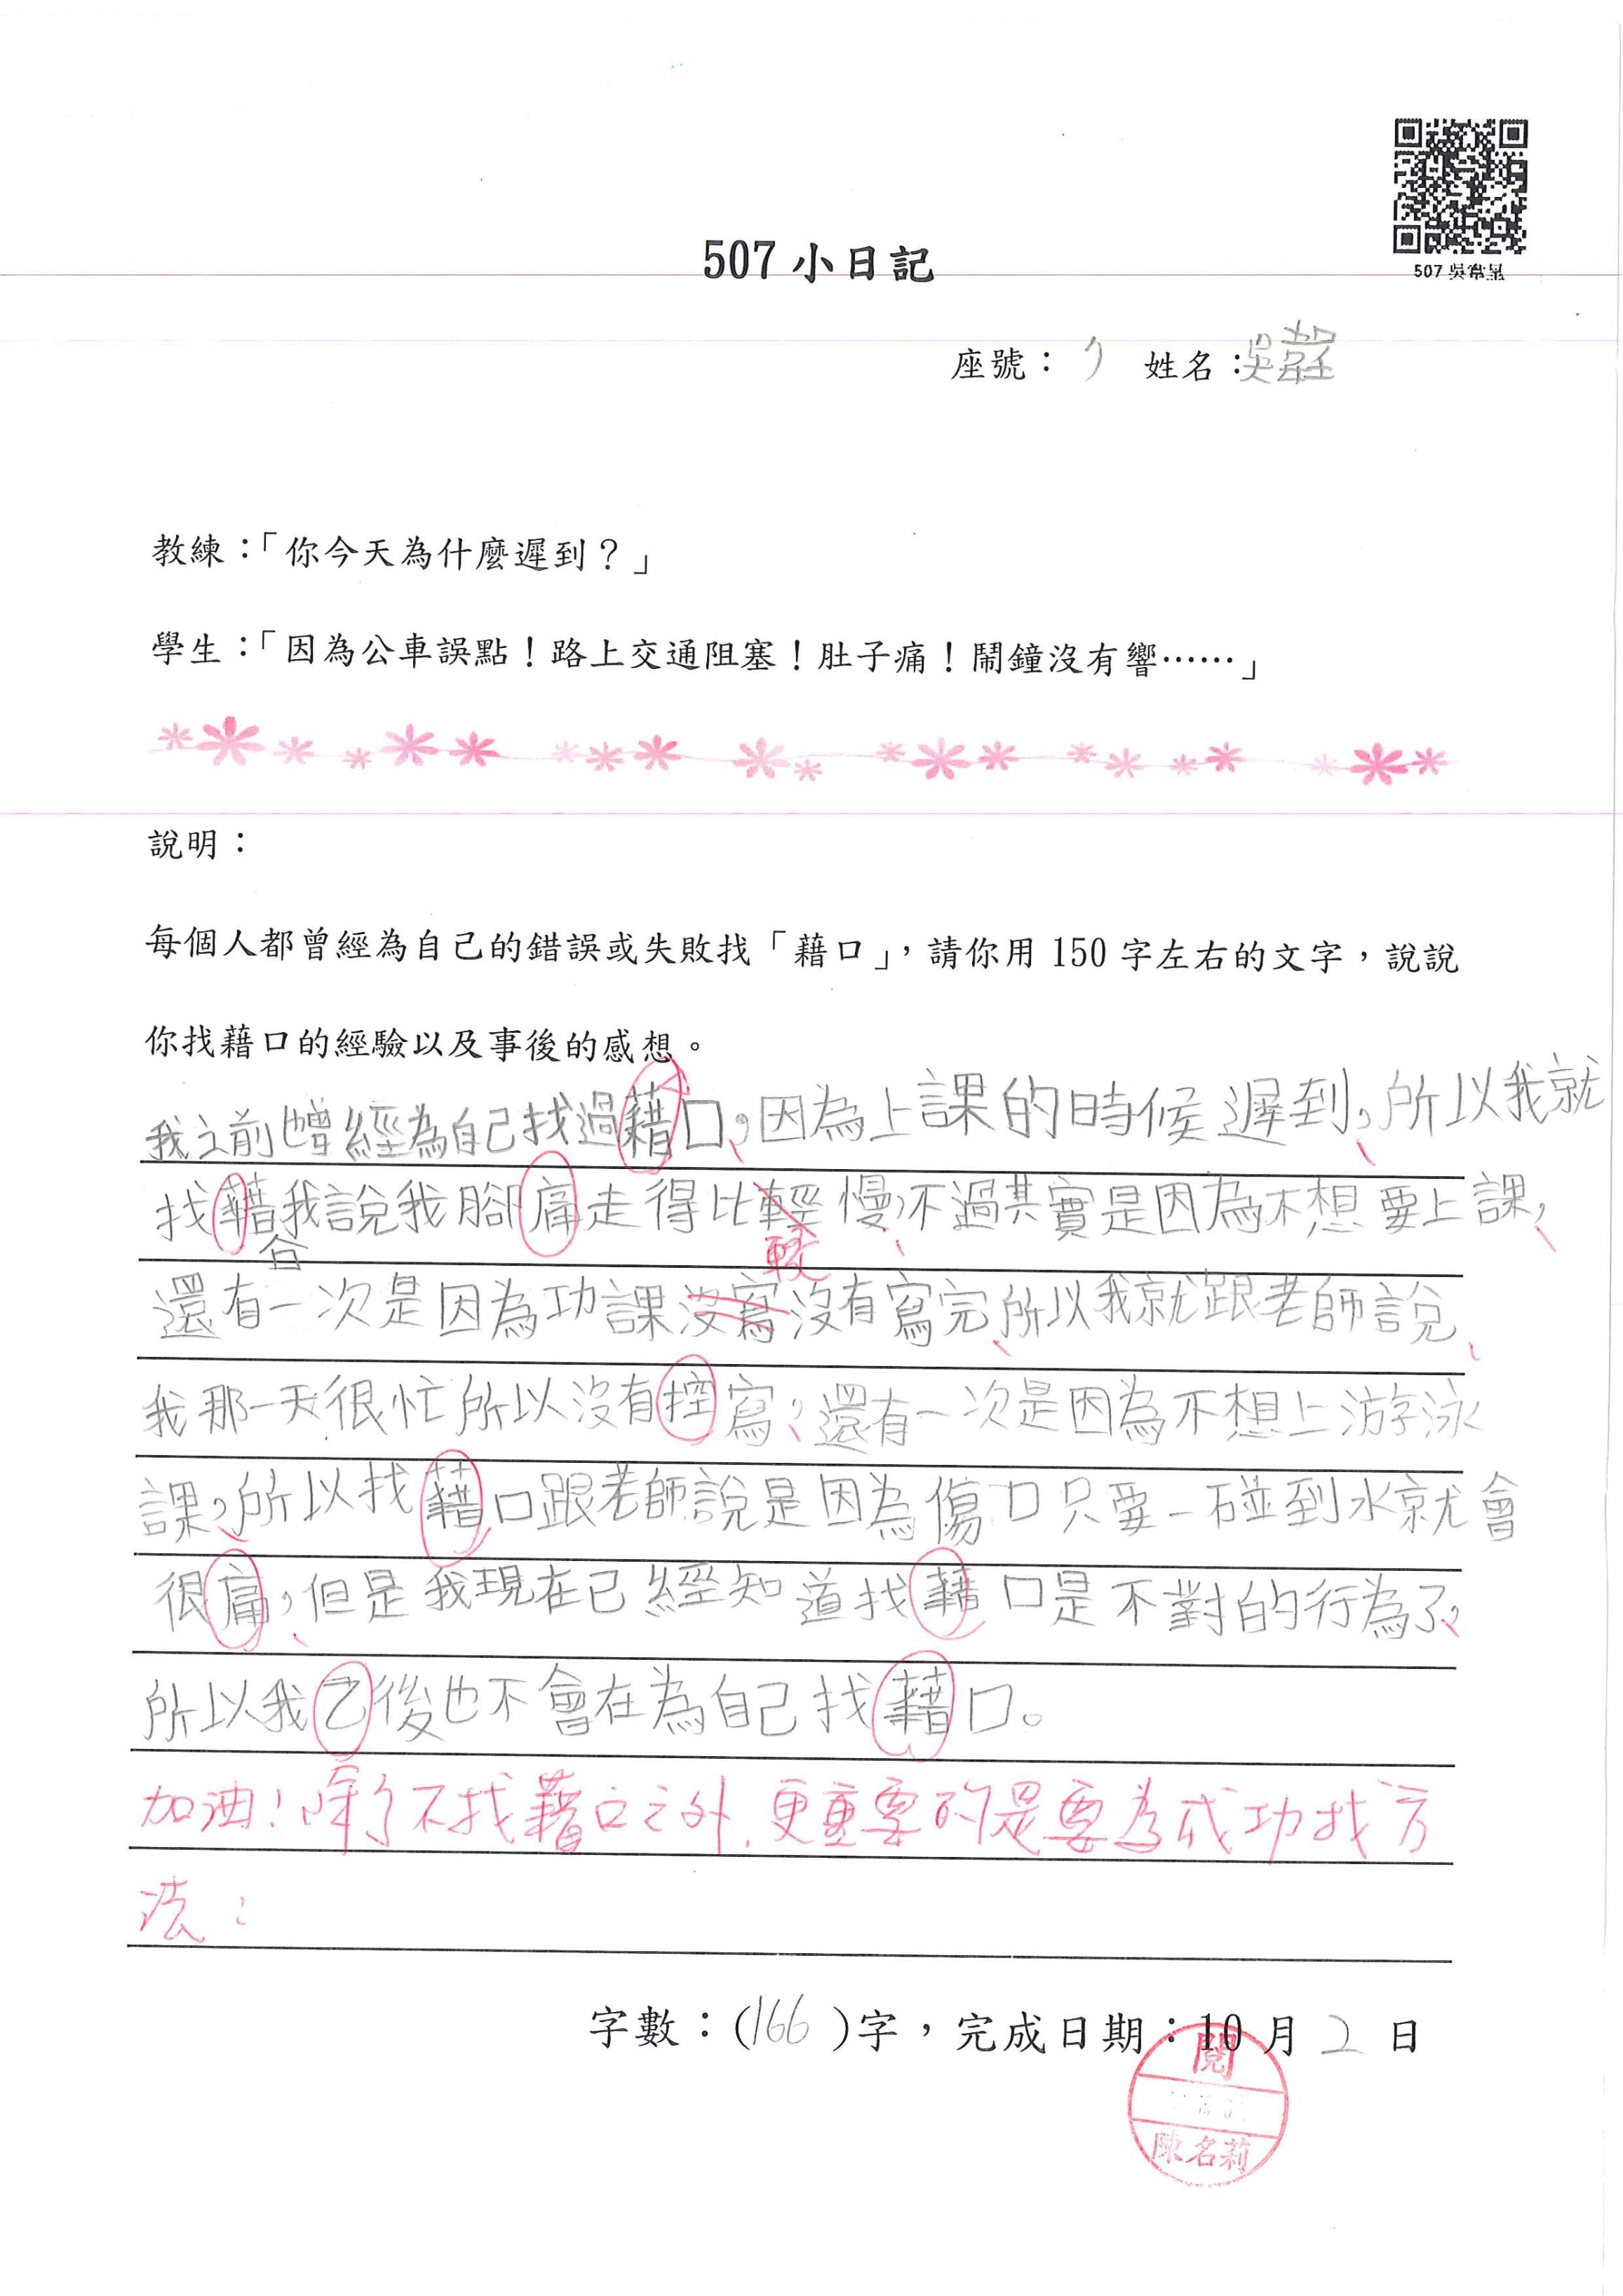 507 吳
507 小日記
座號： 姓名：吳
教練：「你今天為什麼遲到？」
學生：「因為公車誤點！路上交通阻塞！肚子痛！鬧鐘沒有響……」
說明：
每個人都曾經為自己的錯誤或失敗找「藉口」，請你用 150 字左右的文字，說說
你找藉口的經驗以及事後的感想。
我之前也曾經為自己找過藉口，因為上課的時候遲到，所以我就
找藉口我說我腳痛走得比輕慢，不過其實是因為不想要上課，
較
還有一次是因為功課沒寫沒有寫完，所以我就跟老師說，
我那一天很忙所以沒有控寫，還有一次是因為不想上游泳
課，所以找藉口跟老師說是因為傷口只要一碰到水就會
很痛，但是我現在已經知道找藉口是不對的行為了，
所以我已後也不會在為自己找藉口。
加油！除了不找藉口之外，更重要的是要為成功找方
法！
字數：(166)字，完成日期：10 月 2 日
閱
陳名莉